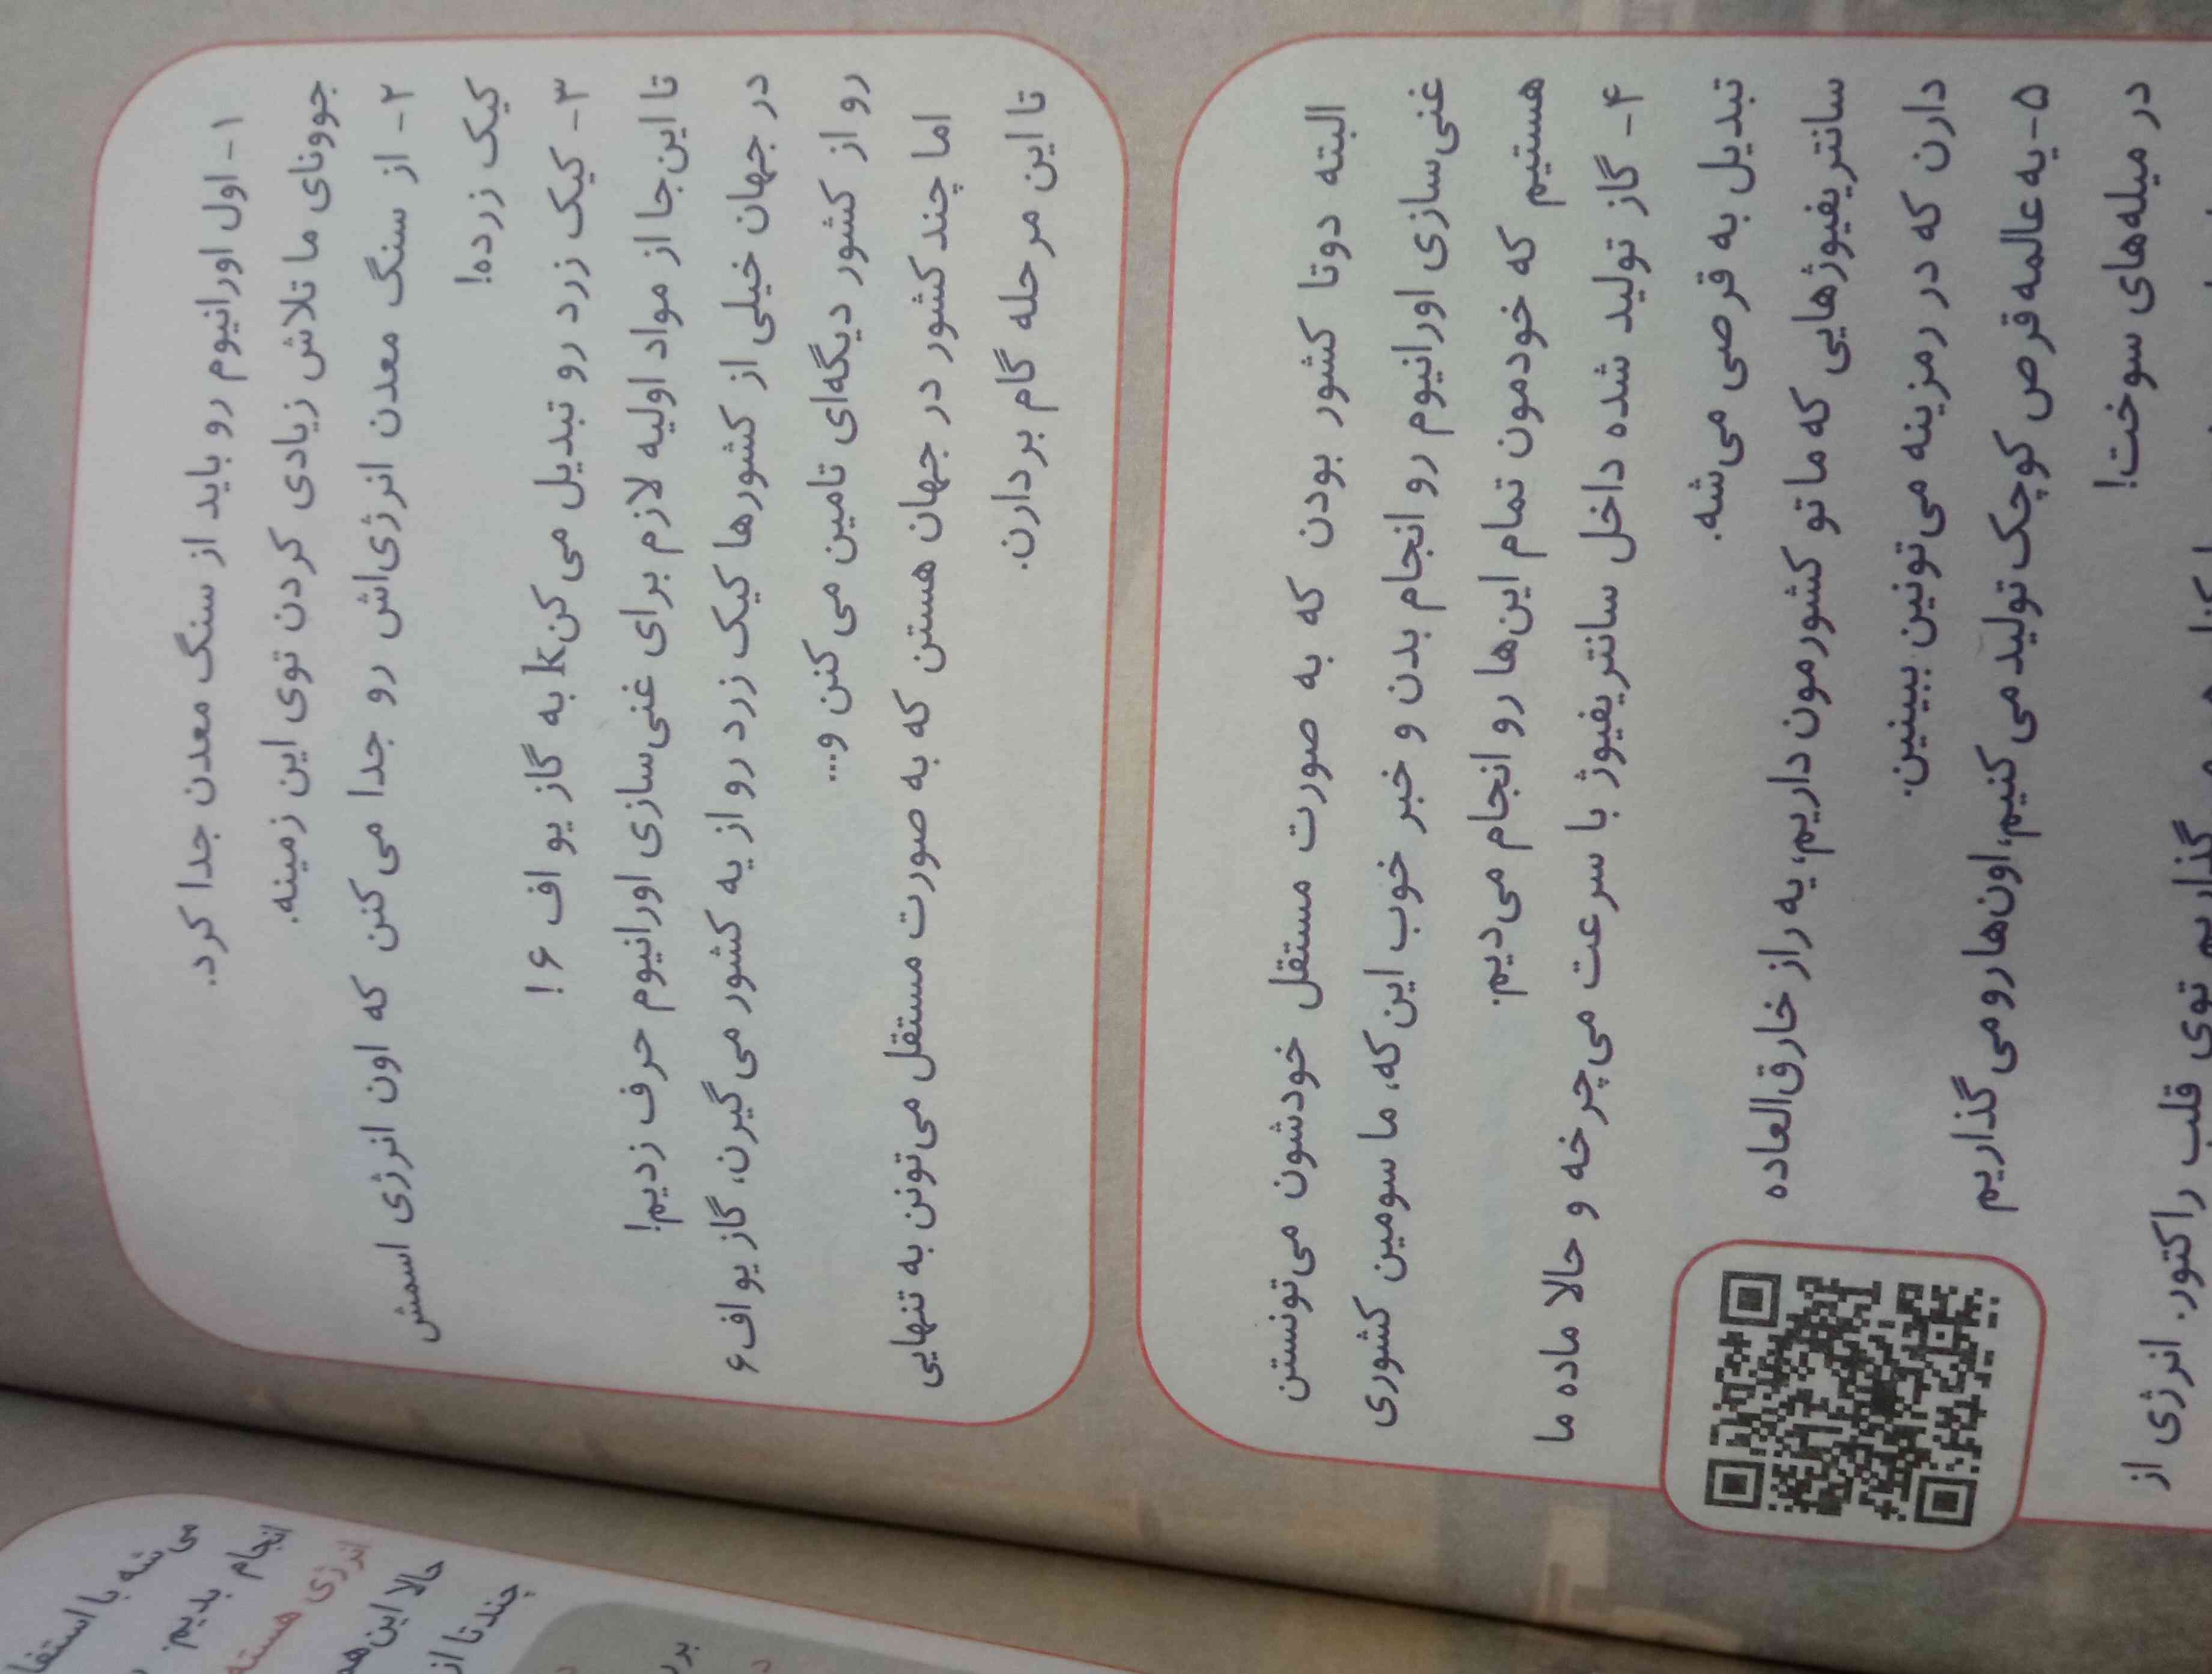 ۱- اول اورانیوم رو باید از سنگ معدن جدا کرد.
جوونای ما تلاش زیادی کردن توی این زمینه.
۲- از سنگ معدن انرژی‌اش رو جدا می‌کنن که اون انرژی اسمش
کیک زرده!
۳- کیک زرد رو تبدیل می‌کنk به گاز یو اف ۶ !
تا این‌جا از مواد اولیه لازم برای غنی‌سازی اورانیوم حرف زدیم!
در جهان خیلی از کشورها کیک زرد رو از یه کشور می‌گیرن، گاز یو اف۶
رو از کشور دیگه‌ای تامین می‌کنن و...
اما چند کشور در جهان هستن که به صورت مستقل می‌تونن به تنهایی
تا این مرحله گام بردارن.
البته دوتا کشور بودن که به صورت مستقل خودشون می‌تونستن
غنی‌سازی اورانیوم رو انجام بدن و خبر خوب این‌که، ما سومین کشوری
هستیم که خودمون تمام این‌ها رو انجام می‌دیم.
۴- گاز تولید شده داخل سانتریفیوژ با سرعت می‌چرخه و حالا ماده ما
تبدیل به قرصی می‌شه.
سانتریفیوژهایی که ما تو کشورمون داریم، یه راز خارق‌العاده
دارن که در رمزینه می‌تونین ببینین.
۵-یه عالمه قرص کوچک تولید می‌کنیم، اون‌ها رو می‌گذاریم
در میله‌های سوخت!
گذاریم توی قلب راکتور. انرژی از
می‌شه با استفا
انجام بدیم.
انرژی هسته
حالا این‌ هد
چندتا از